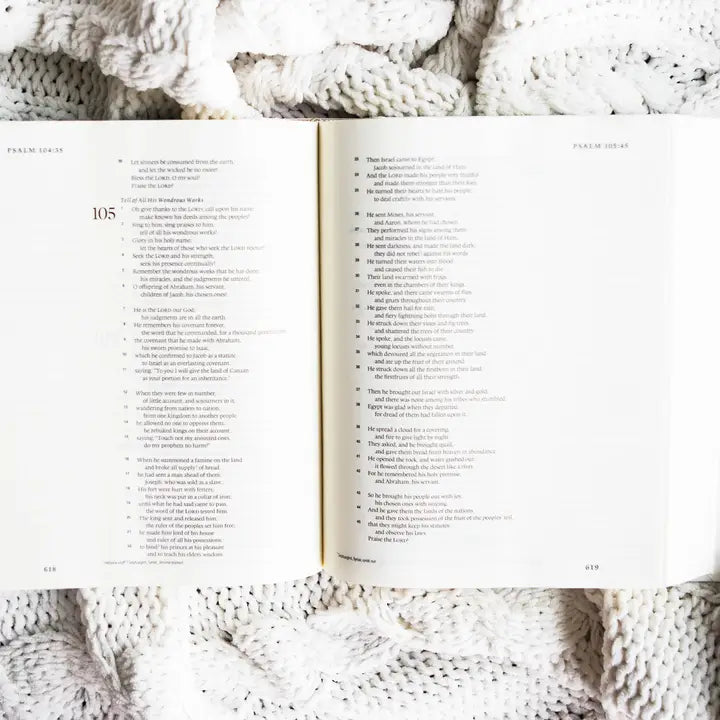 PSALM 104:35
35 Let sinners be consumed from the earth,
and let the wicked be no more!
Bless the LORD, O my soul!
Praise the LORD!
Tell of All His Wondrous Works
105 1 Oh give thanks to the LORD; call upon his name;
make known his deeds among the peoples!
2 Sing to him, sing praises to him;
tell of all his wondrous works!
3 Glory in his holy name;
let the hearts of those who seek the LORD rejoice!
4 Seek the LORD and his strength;
seek his presence continually!
5 Remember the wondrous works that he has done,
his miracles, and the judgments he uttered,
6 O offspring of Abraham, his servant,
children of Jacob, his chosen ones!
7 He is the LORD our God;
his judgments are in all the earth.
8 He remembers his covenant forever,
the word that he commanded, for a thousand generations,
9 the covenant that he made with Abraham,
his sworn promise to Isaac,
10 which he confirmed to Jacob as a statute,
to Israel as an everlasting covenant,
11 saying, "To you I will give the land of Canaan
as your portion for an inheritance."
12 When they were few in number,
of little account, and sojourners in it,
13 wandering from nation to nation,
from one kingdom to another people,
14 he allowed no one to oppress them;
he rebuked kings on their account,
15 saying, "Touch not my anointed ones,
do my prophets no harm!"
16 When he summoned a famine on the land
and broke all supply of bread,
17 he had sent a man ahead of them,
Joseph, who was sold as a slave.
18 His feet were hurt with fetters;
his neck was put in a collar of iron;
19 until what he had said came to pass,
the word of the LORD tested him.
20 The king sent and released him;
the ruler of the peoples set him free;
21 he made him lord of his house
and ruler of all his possessions,
22 to bind his princes at his pleasure
and to teach his elders wisdom.
618
PSALM 105:45
23 Then Israel came to Egypt;
Jacob sojourned in the land of Ham.
24 And the LORD made his people very fruitful
and made them stronger than their foes.
25 He turned their hearts to hate his people,
to deal craftily with his servants.
26 He sent Moses, his servant,
and Aaron, whom he had chosen.
27 They performed his signs among them
and miracles in the land of Ham.
28 He sent darkness, and made the land dark;
they did not rebel against his words.
29 He turned their waters into blood
and caused their fish to die.
30 Their land swarmed with frogs,
even in the chambers of their kings.
31 He spoke, and there came swarms of flies,
and gnats throughout their country.
32 He gave them hail for rain,
and fiery lightning bolts through their land.
33 He struck down their vines and fig trees,
and shattered the trees of their country.
34 He spoke, and the locusts came,
young locusts without number,
35 which devoured all the vegetation in their land
and ate up the fruit of their ground.
36 He struck down all the firstborn in their land,
the firstfruits of all their strength.
37 Then he brought out Israel with silver and gold,
and there was none among his tribes who stumbled.
38 Egypt was glad when they departed,
for dread of them had fallen upon it.
39 He spread a cloud for a covering,
and fire to give light by night.
40 They asked, and he brought quail,
and gave them bread from heaven in abundance.
41 He opened the rock, and water gushed out;
it flowed through the desert like a river.
42 For he remembered his holy promise,
and Abraham, his servant.
43 So he brought his people out with joy,
his chosen ones with singing.
44 And he gave them the lands of the nations,
and they took possession of the fruit of the peoples' toil,
45 that they might keep his statutes
and observe his laws.
Praise the LORD!
619